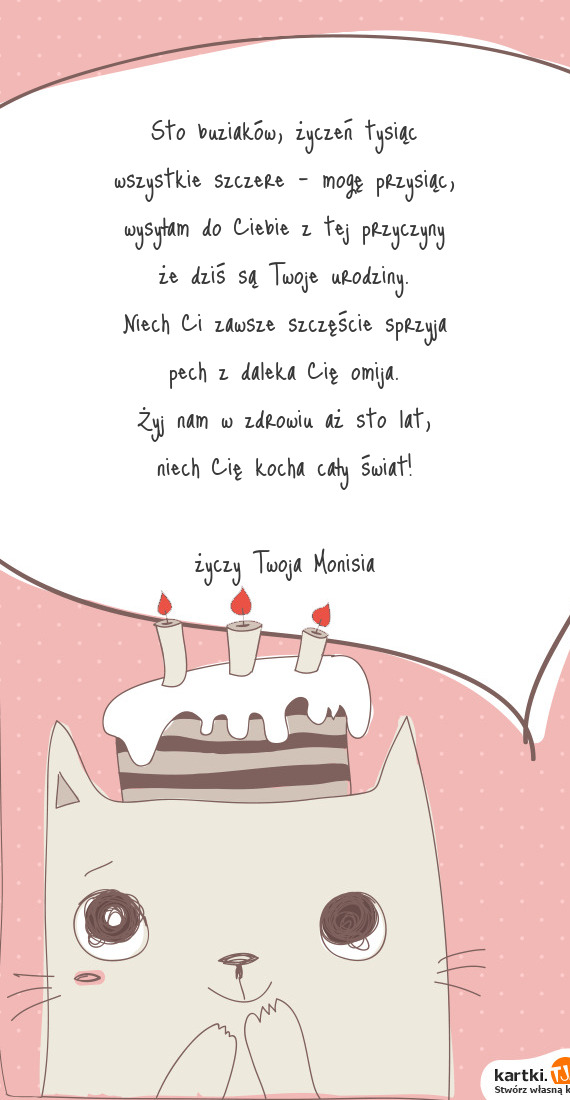 Sto buziaków, życzeń tysiąc
wszystkie szczere - mogę przysiąc,
wysyłam do Ciebie z tej przyczyny
że dziś są Twoje urodziny.
Niech Ci zawsze szczęście sprzyja
pech z daleka Cię omija.
Żyj nam w zdrowiu aż sto lat,
niech Cię kocha cały świat!
życzy Twoja Monisia
kartki.TJ
Stwórz własną k